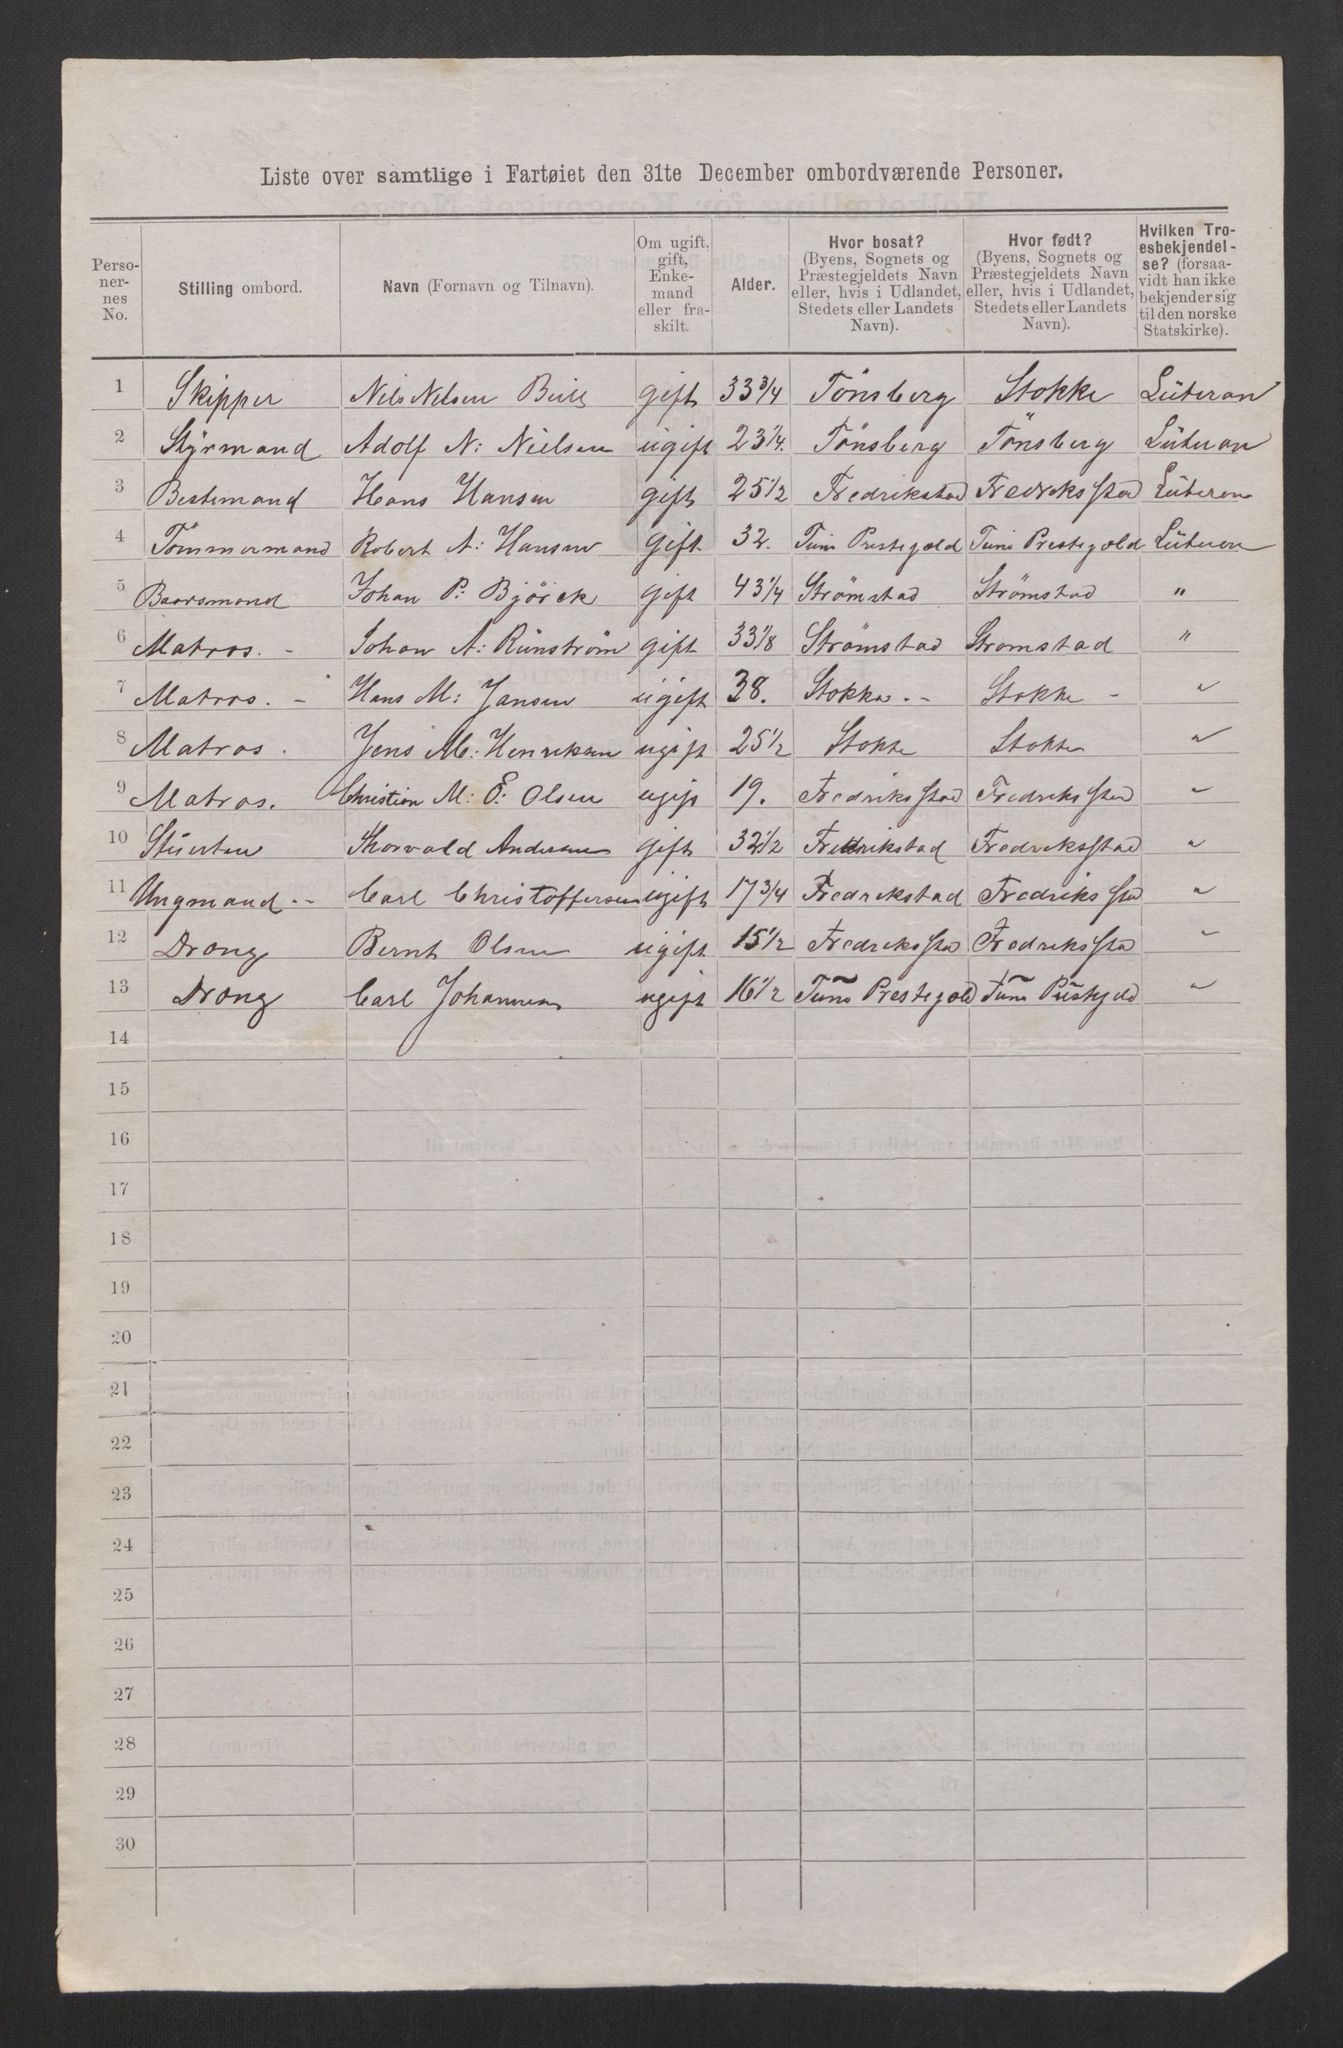 Liste over samtlige i Fartøiet den 31te December ombordværende Personer.
Perso-
ner-
nes
No.
Stilling ombord.
Navn (Fornavn og Tilnavn).
Om ugift,
gift,
Enke-
mand
eller fra-
skilt.
Alder.
Hvor bosat?
(Byens, Sognets og
Præstegjeldets Navn
eller, hvis i Udlandet,
Stedets eller Landets
Navn).
Hvor født?
(Byens, Sognets og
Præstegjeldets Navn
eller, hvis i Udlandet,
Stedets eller Landets
Navn).
Hvilken Tro-
esbekjendel-
se? (forsaa-
vidt han ikke
bekjender sig
til den norske
Statskirke).
1 Skipper Nils Nelsen gift 33 3/4 Tönsberg Stokke Lüteran
2 Styrmand Adolf N: Nielsen ugift 23 1/4. Tönsberg Tönsberg Lüteran
3 Bestemand Hans Hansen gift 25 1/2 Fredrikstad Fredriksstad Lüteran
4 Tömmermand Robert A: Hansen gift 32. Tune Prestegjæld Tune Prestegjæld Lüteran
5 Baarsmand Johan P: Björck gift 43 1/4 Strömstad Strömstad "
6 Matros. - Johan A: Runström gift 33 1/8 Strömstad Stromstad "
7 Matros. - Hans M: Jansen ugift 38. Stokke. - Stokke - "
8 Matros. Jens M: Henriksen ugift 25 1/2 Stokke Stokke "
9 Matros. Christian M: E: Olsen ugift 19. Fredriksstad Fredriksstad "
10 Stüerten Thorvald Andersen gift 32 1/2 Fredrikstad Fredriksstad "
11 Ungmand - - Carl Christoffersen ugift 17 3/4 Fredrikstad Fredriksstad "
12 Drong Bernt Olsen ugift 15 1/2 Fredriksstad Fredriksstad "
13 Drong Carl Johannesen ugift 16 1/2 Tune Prestegjæld Tune Prestegjeld "
14
15
16
17
18
19
20
21
22
23
24
25
26
27
28
29
30